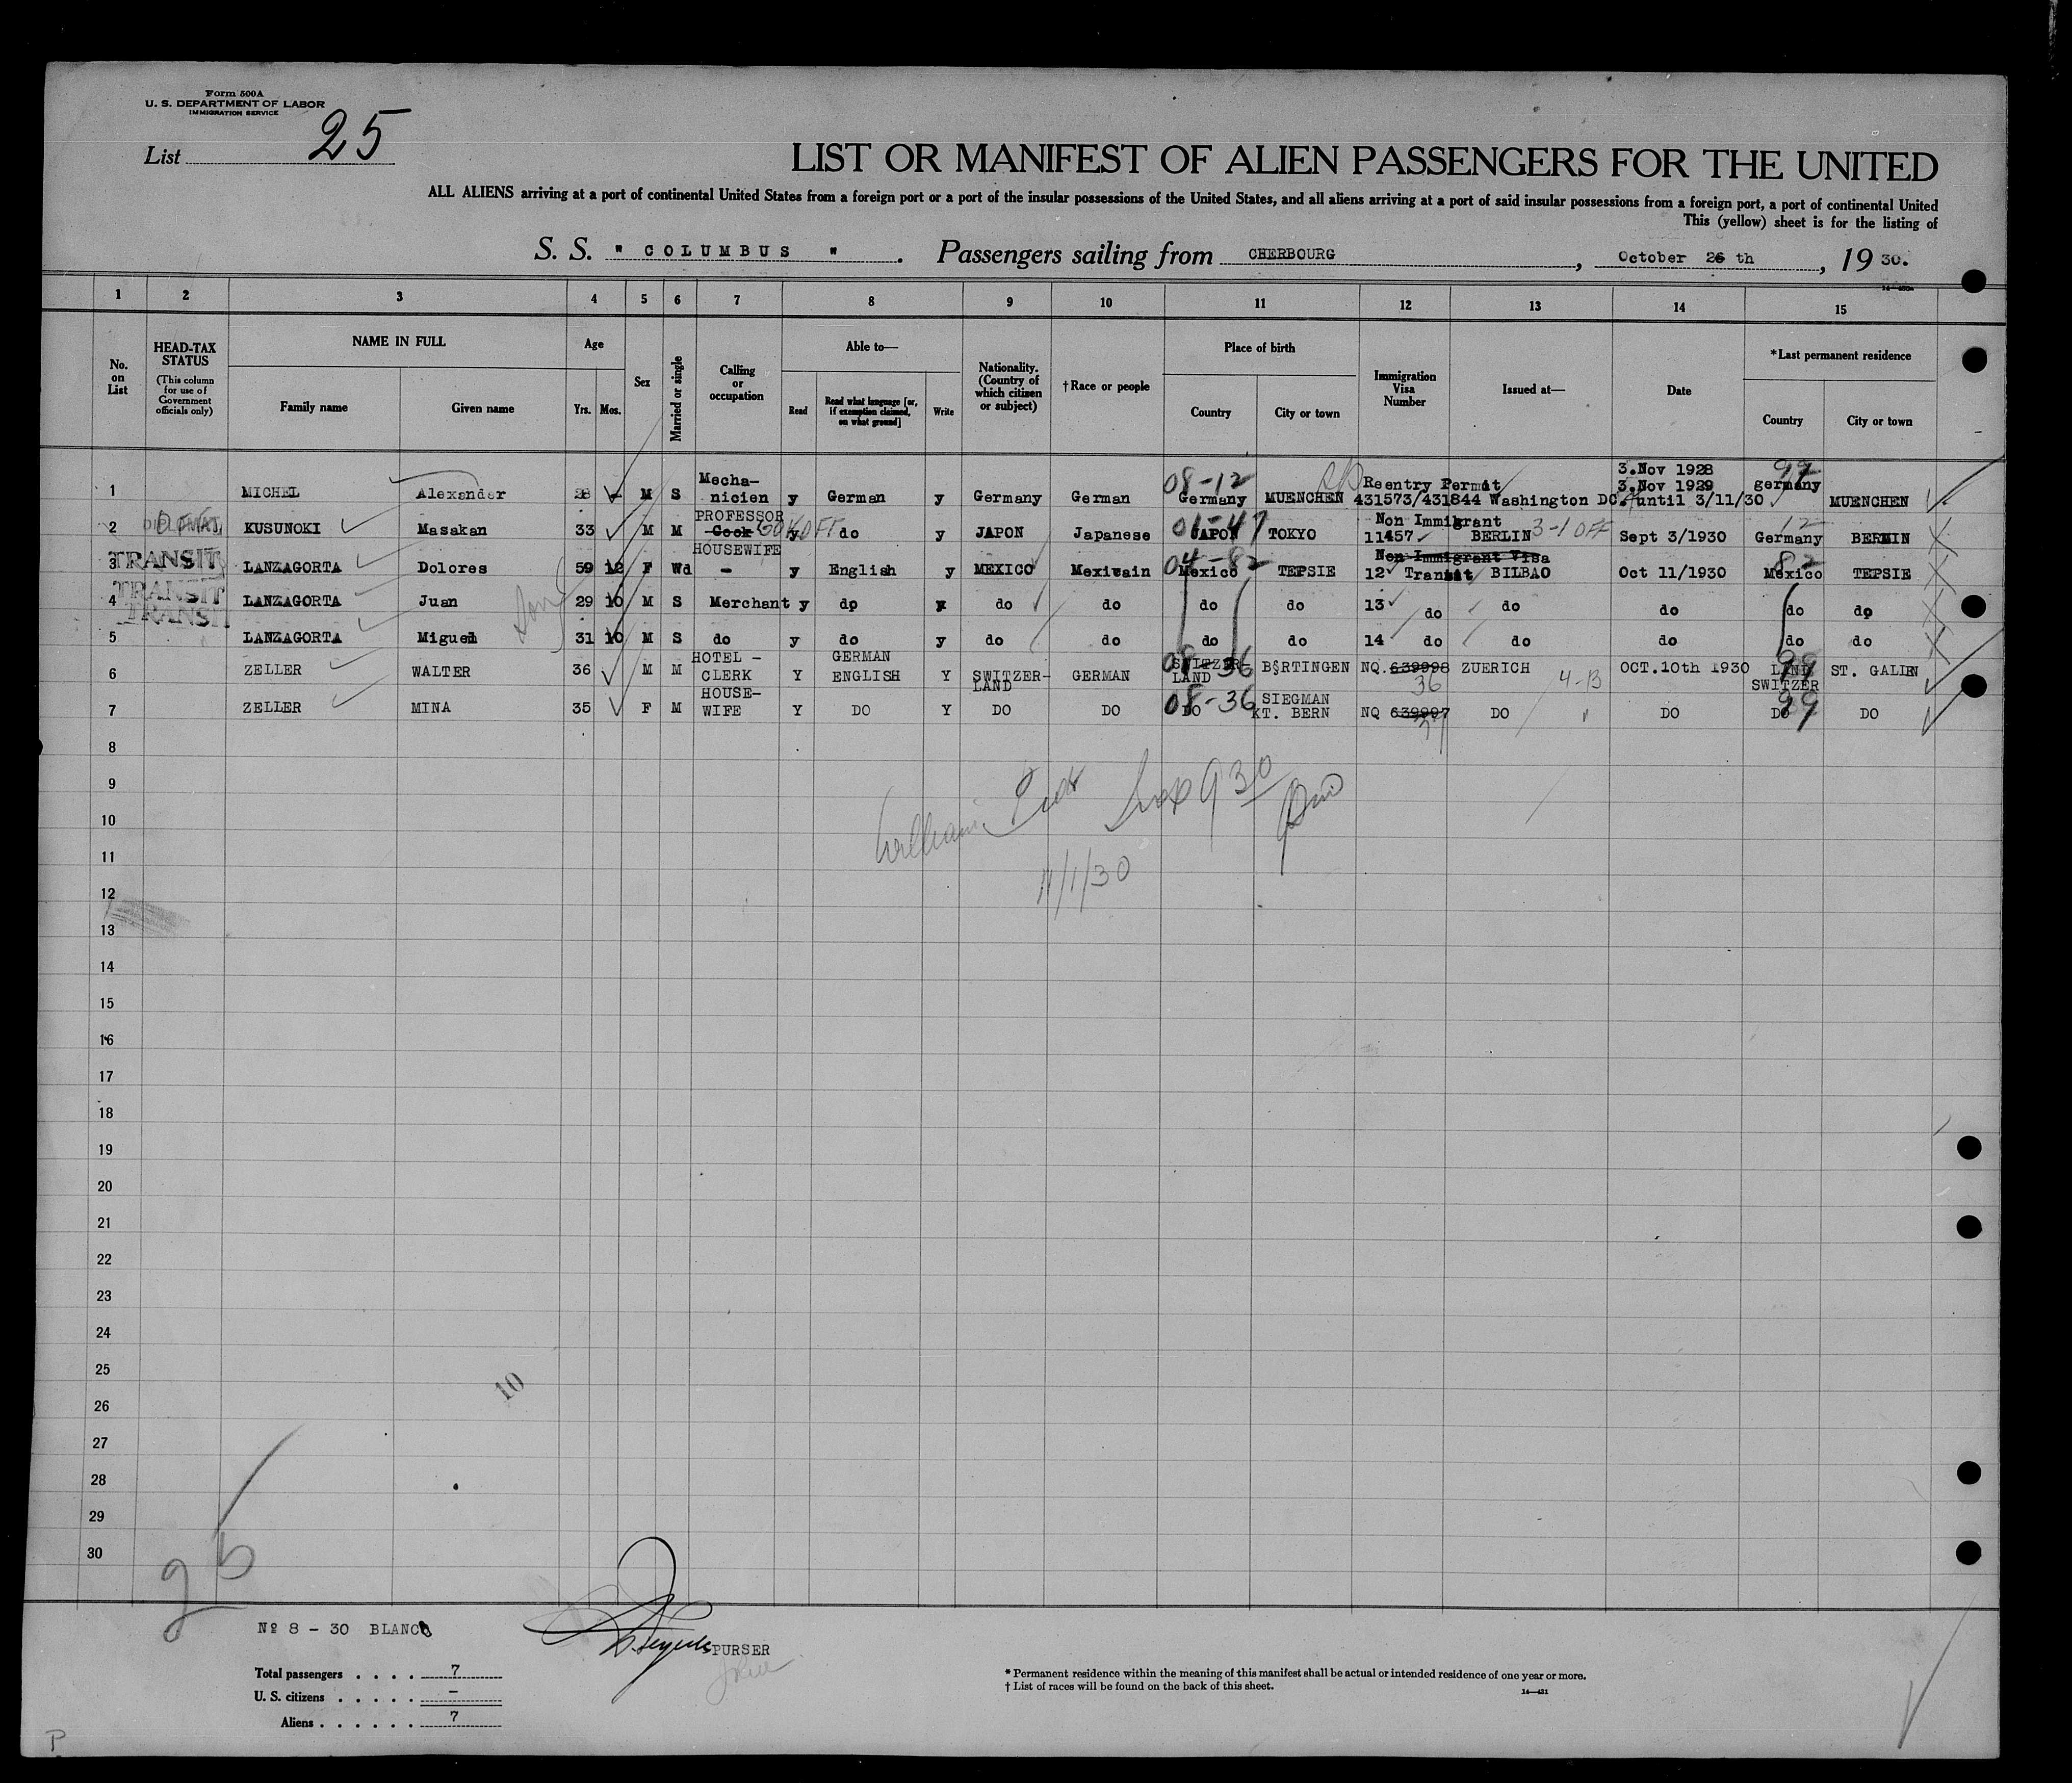 Form 500A
U. S. DEPARTMENT OF LABOR
IMMIGRATION SERVICE
List 25
LIST OR MANIFEST OF ALIEN PASSENGERS FOR THE UNITED
ALL ALIENS arriving at a port of continental United States from a foreign port or a port of the insular possessions of the United States, and all aliens arriving at a port of said insular possessions from a foreign port, a port of continental United
This (yellow) sheet is for the listing of
S. S. " COLUMBUS " . Passengers sailing from CHERBOURG , October 26 th , 19 30.
1 2 3 4 5 6 7 8 9 10 11 12 13 14 15
No. on List
HEAD-TAX STATUS
(This column for use of Government officials only)
NAME IN FULL
Family name Given name
Age
Yrs. Mos.
Sex
Married or single
Calling or occupation
Able to—
Read
Read what language [or, if exemption claimed, on what ground]
Write
Nationality. (Country of which citizen or subject)
†Race or people
Place of birth
Country City or town
Immigration Visa Number
Issued at—
Date
*Last permanent residence
Country City or town
1 MICHEL Alexander 28 - M S Mecha-nicien y German y Germany German 08-12 Germany MUENCHEN Reentry Permit 431573/431844 Washington DC. 3.Nov 1928 3.Nov 1929 until 3/11/30 germany MUENCHEN
2 DIPLOMAT KUSUNOKI Masakan 33 M M PROFESSOR Cook y do y JAPON Japanese 01-47 JAPON TOKYO Non Immigrant 11457 BERLIN 3-1 OFF Sept 3/1930 12 Germany BERLIN
3 TRANSIT LANZAGORTA Dolores 59 12 F Wd HOUSEWIFE - y English y MEXICO Mexicain 04-82 Mexico TEPSIE Non Immigrant Visa 12 Transit BILBAO Oct 11/1930 82 Mexico TEPSIE
4 TRANSIT LANZAGORTA Juan 29 10 M S Merchant y do y do do do do 13 do do do do do
5 TRANSIT LANZAGORTA Miguel 31 10 M S do y do y do do do do 14 do do do do do
6 ZELLER WALTER 36 M M HOTEL - CLERK Y GERMAN ENGLISH Y SWITZER-LAND GERMAN 08-36 SWITZER-LAND B§RTINGEN NQ. 639998 36 ZUERICH 4-B OCT.10th 1930 99 LAND SWITZER ST. GALLEN
7 ZELLER MINA 35 F M HOUSE-WIFE Y DO Y DO DO 08-36 DO SIEGMAN KT. BERN NQ 639997 37 DO DO 99 DO DO
8
9
10
11
11/1/30
12
13
14
15
16
17
18
19
20
21
22
23
24
25
10
26
27
28
29
30
Nº 8 - 30 BLANCO
PURSER
Total passengers . . . . 7
U. S. citizens . . . . . -
Aliens . . . . . . 7
* Permanent residence within the meaning of this manifest shall be actual or intended residence of one year or more.
† List of races will be found on the back of this sheet.
14—421
P